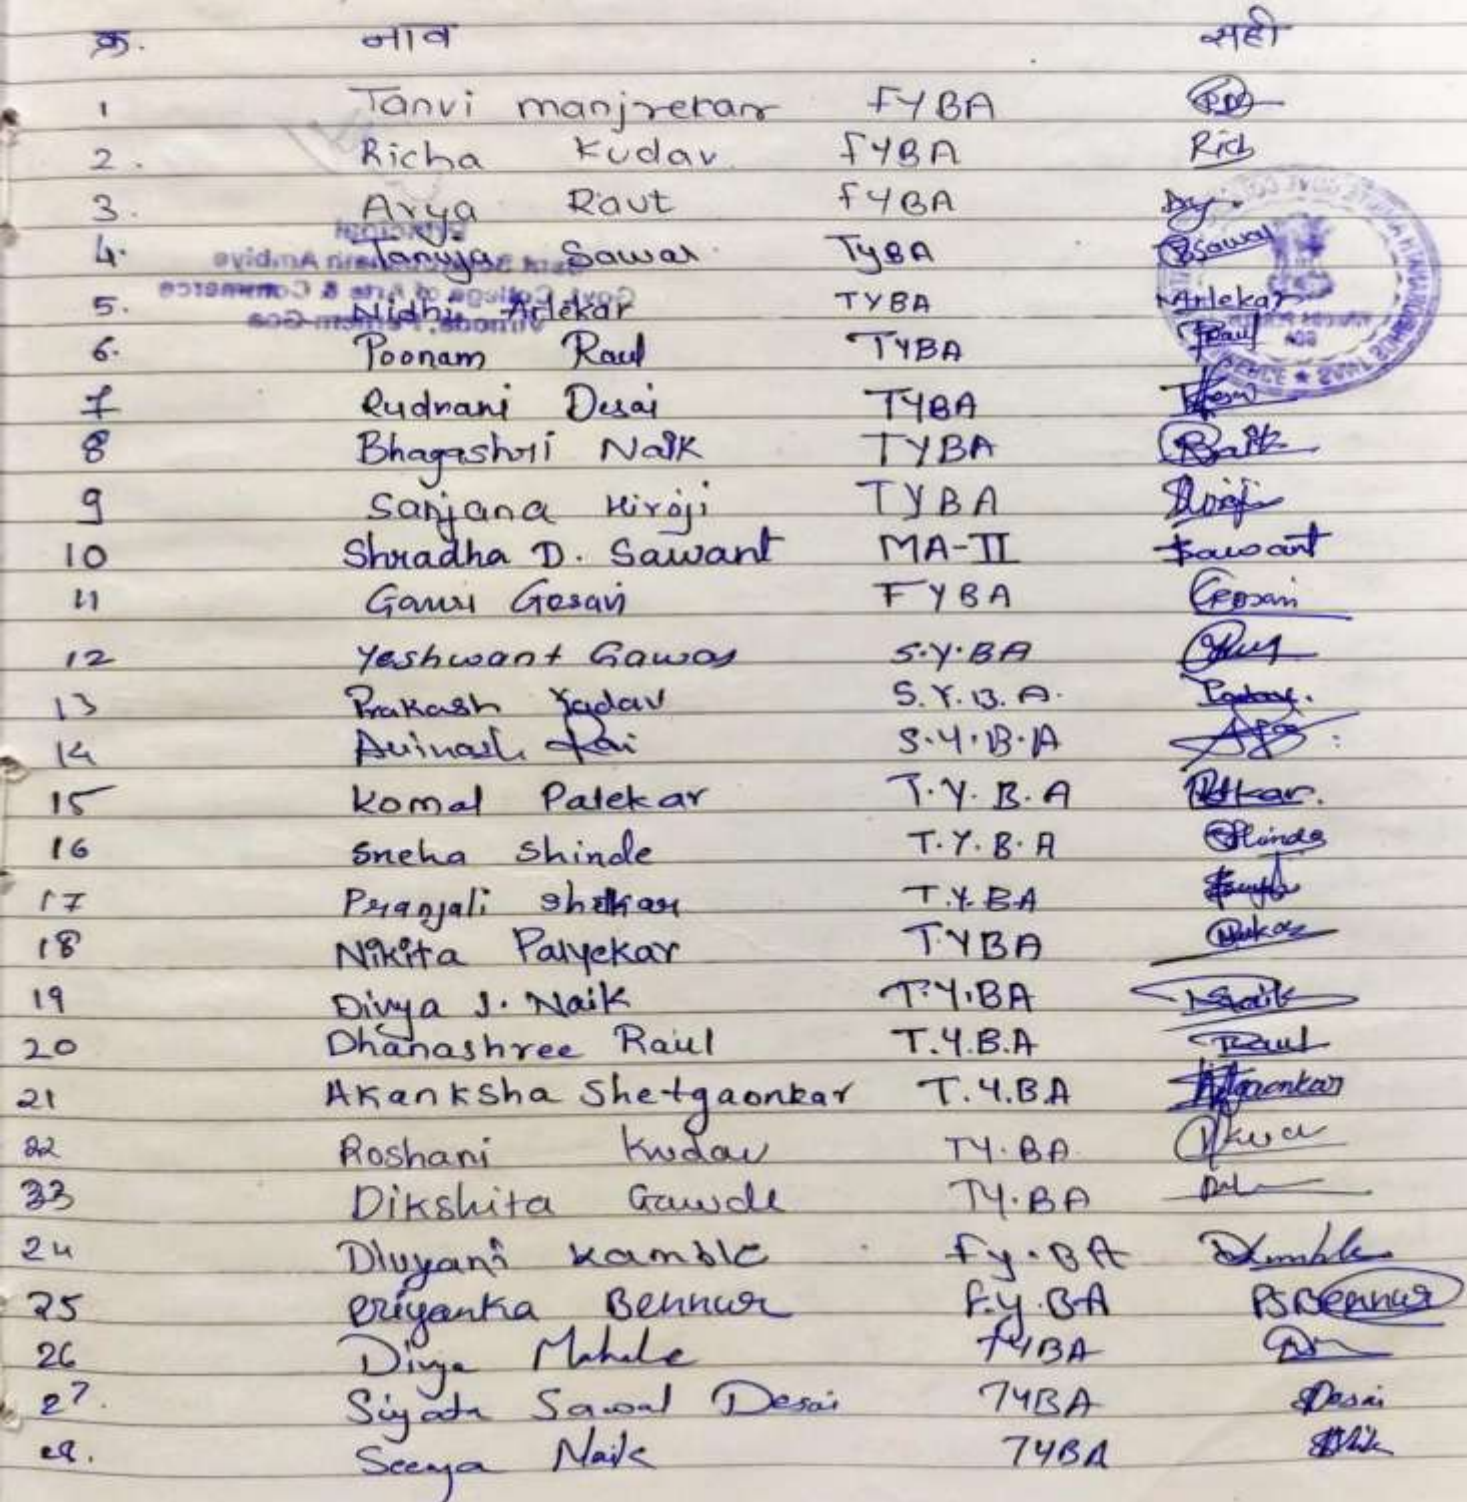 क्र. नाव सही
1 Tanvi manjrekar FYBA
2. Richa Kudav. FYBA Rich
3. Arya Raut FYBA Ary.
4. Tanuja Sawal TyBA Bsawal
5. Nidhi Arlekar TYBA Arlekar
6. Poonam Raul TYBA Raul
7 Rudrani Desai TYBA Desai
8 Bhagashri Naik TYBA Baik
9 Sanjana Hiroji TYBA Hiroji
10 Shradha D. Sawant MA-II Sawant
11 Gauri Gosavi FYBA Gosavi
12 Yeshwant Gawas S.Y.BA
13 Prakash Yadav S.Y.B.A.
14 Avinash Rai S.Y.B.A
15 Komal Palekar T.Y.B.A
16 Sneha Shinde T.Y.B.A Shinde
17 Pranjali T.Y.BA
18 Nikita Palyekar TYBA
19 Divya J. Naik T.Y.BA Naik
20 Dhanashree Raul T.Y.B.A Raul
21 Akanksha Shetgaonkar T.Y.B.A
22 Roshani Kudav TY.BA
33 Dikshita Gawde TY.BA
24 Divyani Kamble Fy.BA
25 Priyanka Bennur F.y.BA PSBennur
26 Divya Mahale TYBA
27. Siyata Sawal Desai TYBA Desai
28. Seeya Naik TYBA